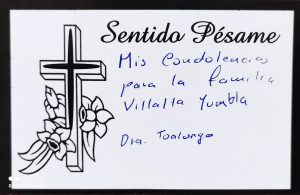 Sentido Pésame
Mis Condolencias
para la familia
Villalta Yumbla
Dra. Toalongo